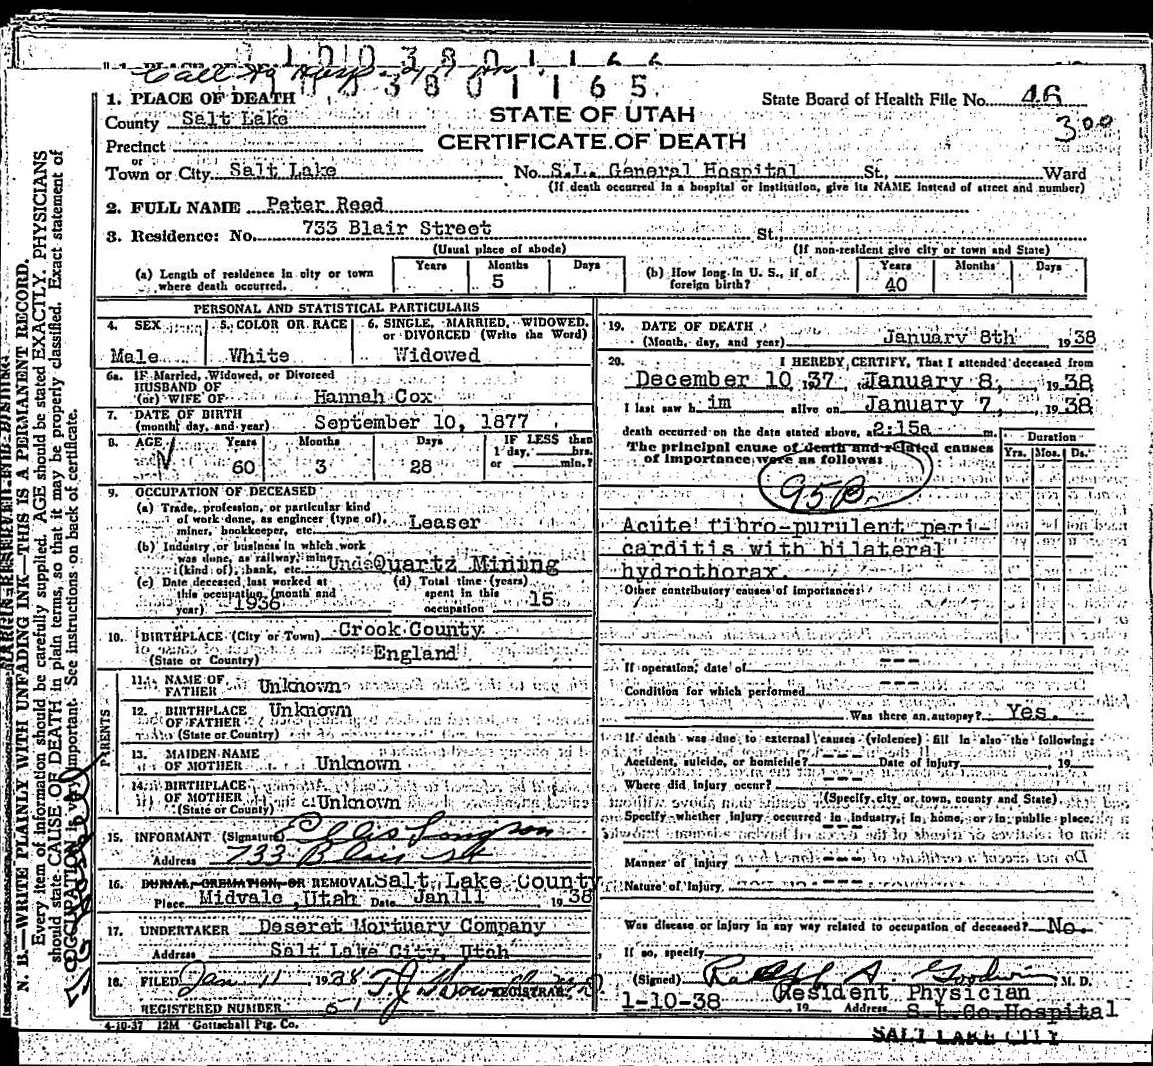 1003801165
1. PLACE OF DEATH
STATE OF UTAH
State Board of Health File No. 46
County Salt Lake
CERTIFICATE OF DEATH
3 00
Precinct
or
Town or City Salt Lake No. S.L. General Hospital St., Ward
(If death occurred in a hospital or institution, give its NAME instead of street and number)
2. FULL NAME Peter Reed
3. Residence: No. 733 Blair Street St.,
(Usual place of abode) (If non-resident give city or town and State)
(a) Length of residence in city or town where death occurred. Years Months 5 Days
(b) How long in U. S., if of foreign birth? Years 40 Months Days
PERSONAL AND STATISTICAL PARTICULARS
4. SEX Male
5. COLOR OR RACE White
6. SINGLE, MARRIED, WIDOWED, or DIVORCED (Write the Word) Widowed
6a. IF Married, Widowed, or Divorced
HUSBAND OF
(or) WIFE OF Hannah Cox
7. DATE OF BIRTH
(month, day, and year) September 10, 1877
8. AGE Years 60 Months 3 Days 28 IF LESS than 1 day, hrs. or min.?
9. OCCUPATION OF DECEASED
(a) Trade, profession, or particular kind
of work done, as engineer (type of),
miner, bookkeeper, etc. Leaser
(b) Industry or business in which work
was done, as railway, mine
(kind of), bank, etc. Quartz Mining
(c) Date deceased last worked at
this occupation (month and
year) 1936
(d) Total time (years)
spent in this
occupation 15
10. BIRTHPLACE (City or Town) Crook County
(State or Country) England
PARENTS
11. NAME OF
FATHER Unknown
12. BIRTHPLACE
OF FATHER Unknown
(State or Country)
13. MAIDEN NAME
OF MOTHER Unknown
14. BIRTHPLACE
OF MOTHER Unknown
(State or County)
15. INFORMANT (Signature)
Address 733 Blair St
16. BURIAL, CREMATION, OR REMOVAL Salt Lake County
Place Midvale, Utah Date Jan 11 1938
17. UNDERTAKER Deseret Mortuary Company
Address Salt Lake City, Utah
18. FILED Jan 11 1938
REGISTRAR
REGISTERED NUMBER 51
4-10-37 12M Gottschall Ptg. Co.
19. DATE OF DEATH
(Month, day, and year) January 8th 1938
20. I HEREBY CERTIFY, That I attended deceased from
December 10, 1937 to January 8, 1938
I last saw him alive on January 7, 1938
death occurred on the date stated above, at 2:15a m.
The principal cause of death and related causes
of importance were as follows:
Duration
Yrs. Mos. Ds.
95B.
Acute fibro-purulent peri-
carditis with bilateral
hydrothorax.
Other contributory causes of importance:
If operation, date of ---
Condition for which performed ---
Was there an autopsy? Yes.
If death was due to external causes (violence) fill in also the following:
Accident, suicide, or homicide? --- Date of injury 19
Where did injury occur? ---
(Specify city or town, county and State)
Specify whether injury occurred in industry, in home, or in public place.
---
Manner of injury ---
Nature of Injury ---
Was disease or injury in any way related to occupation of deceased? No.
If so, specify
(Signed) Ralph A. Goodwin M. D.
1-10-38 Resident Physician
19 Address S.L.Co.Hospital
SALT LAKE CITY
MARGIN RESERVED FOR BINDING
N. B.—WRITE PLAINLY WITH UNFADING INK—THIS IS A PERMANENT RECORD.
Every item of information should be carefully supplied. AGE should be stated EXACTLY. PHYSICIANS
should state CAUSE OF DEATH in plain terms, so that it may be properly classified. Exact statement of
OCCUPATION is very important. See instructions on back of certificate.